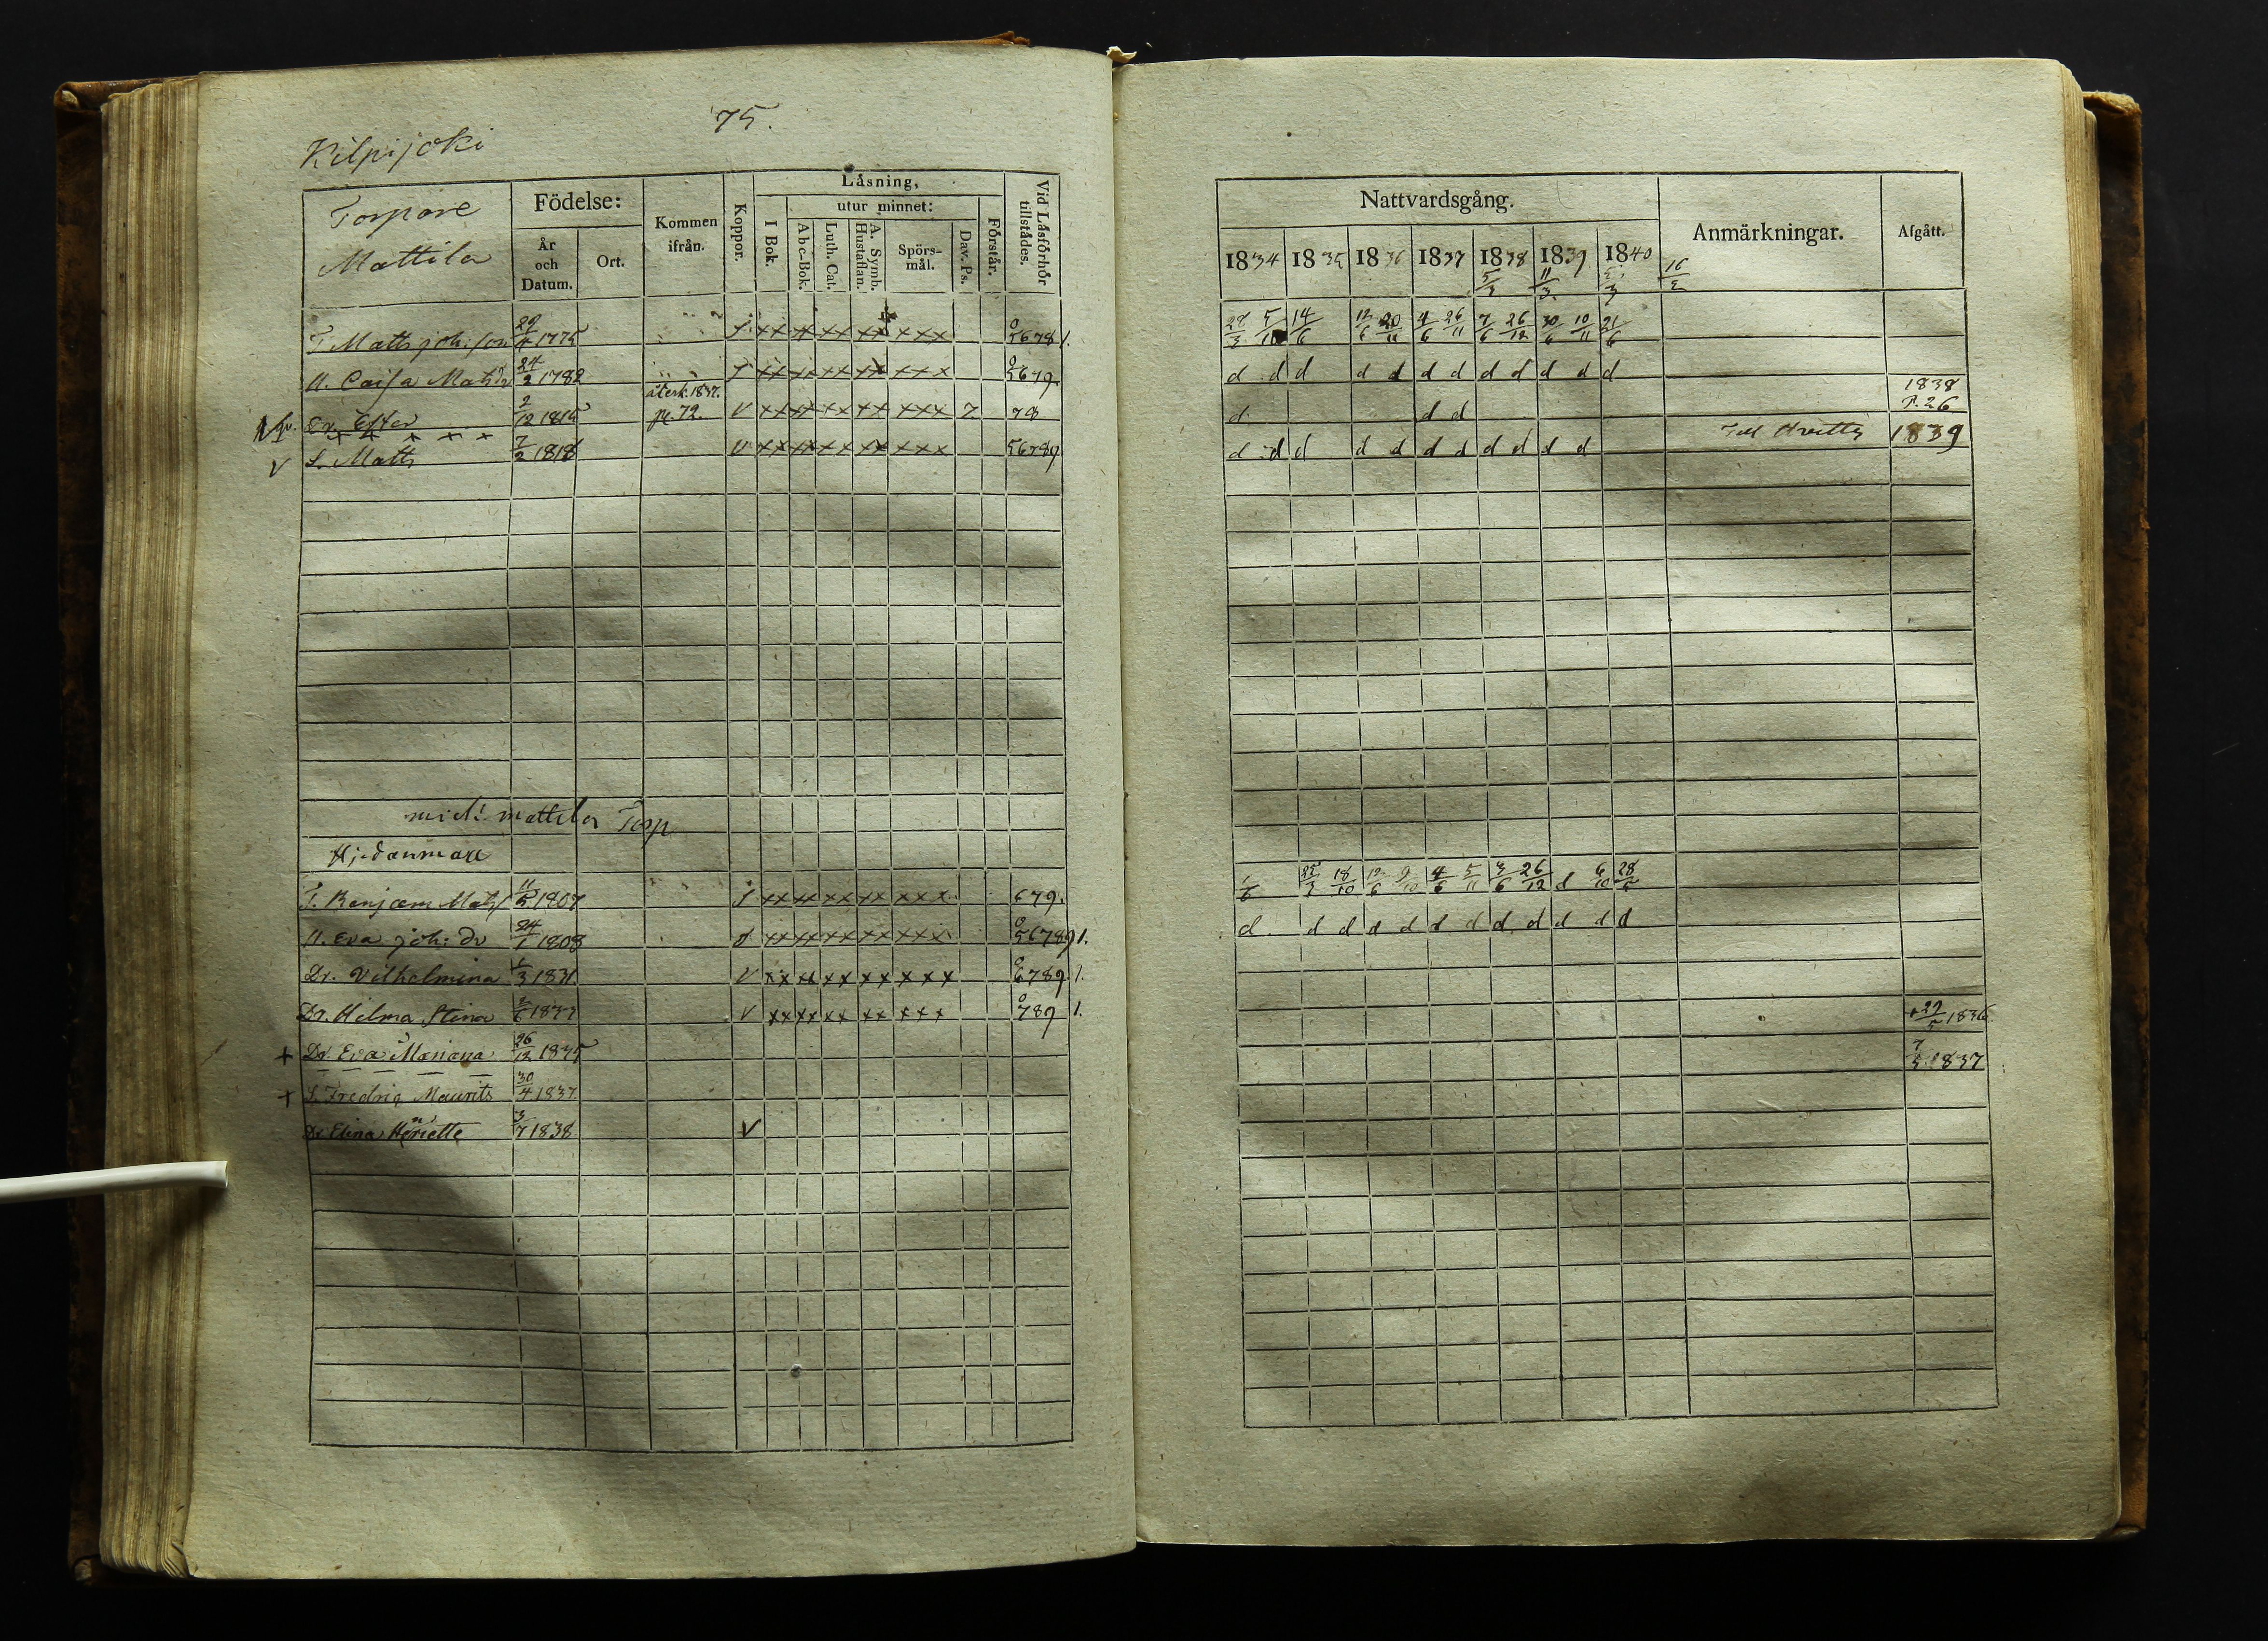 75.
Kilpijoki
Torpare
Mattila
Födelse:
År och Datum.
Ort.
Kommen ifrån.
Koppor.
Låsning,
I Bok.
utur minnet:
Abc-Bok.
Luth. Cat.
A. Symb. Hustaflan.
Spörsmål.
Dav. Ps.
Förstår.
Vid Låsförhör tillstådes.
T. Matts Joh: son 29/ 1775 xx xx xx xx xxx 5678 1.
H. Caisa Mats dr 24/2 1782 xx xx xx xx xxx 5679.
Dr. Ester 2/12 1815 återk. 1837. p. 72. v xx xx xx xx xxx 7. 78
v S. Matts 7/2 1818 v xx xx xx xx xxx 56789
mattila Torp
T. Benjam Mats 11/ 1807 xx xx xx xx xxx 679.
H. Eva Joh: dr 24/1 1808 xx xx xx xx xxx 567891.
Dr. Vilhelmina /3 1831. v xx xx xx xx xxx 6789 1.
Dr. Hilma Stina /6 1833 v xx xx xx xx xxx 789 1.
+ Dr. Eva Mariana 26/12 1835
+ S. Fredric Maurits 30/4 1837.
Dr Elina Henriette 3/7 1838 v
Nattvardsgång.
Anmärkningar.
Afgått.
1834 1835 1836 1837 1838 1839 1840
5/3 11/3 5/3 16/2
28/3 5/ 14/6 12/6 20/11 4/6 26/11 7/6 26/12 30/6 10/11 21/6
d d d d d d d d d d d d
d. d d 1838 P. 26
d d d d d d d d d d d Till Hvittis 1839
1/6 25/3 18/10 12/6 9/10 4/6 5/11 3/6 26/12 d 6/10 28/5
d d d d d d d d d d d d
+ 22/5 1836
7/5 1837